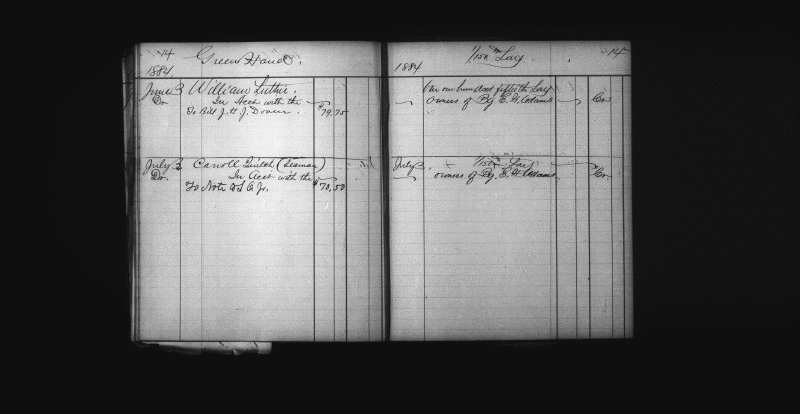 14
Green Hand.
1884.
June 3 William Luther.
Dr In Acct with the
To Bill J. H. J. $79.75
July 3 Carroll (Seaman)
Dr In Acct with the
To Note $70.50
1/150th Lay
14
1884
one hundred fiftieth Lay
owners of Bg E. H. Adams Cr
July 3. 1/150th Lay
owners of Bg. E. H. Adams Cr